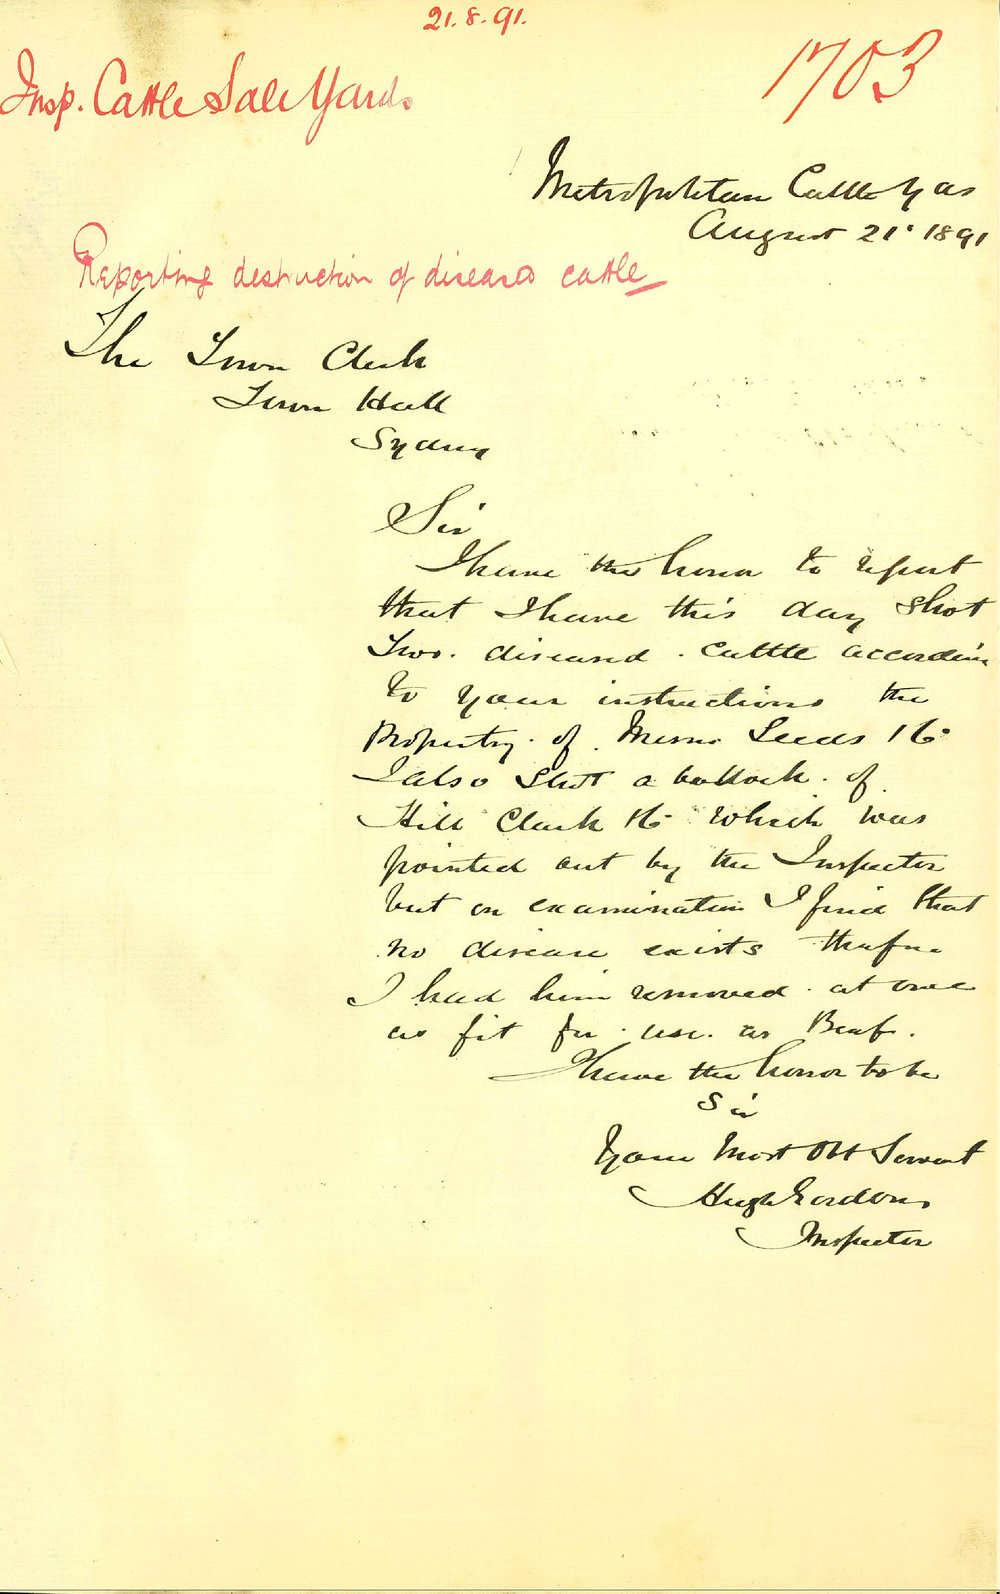 21.8.91.
1703
Insp. Cattle Sale Yards
Metropolitan Cattle Yas
August 21 1891
Reporting destruction of diseased cattle
The Town Clerk
Town Hall
Sydney
Sir
I have the honor to report
that I have this day shot
Two diseased cattle accordin
to your instructions the
Property of Messrs Leeds
I also Shot a bullock of
Hill Clark which was
pointed out by the Inspector
but on examination I find that
no disease exists therefore
I had him removed at once
as fit for use as Beef.
I have the honor to be
Sir
Your Most Obt Servant
Hugh Gordon
Inspector